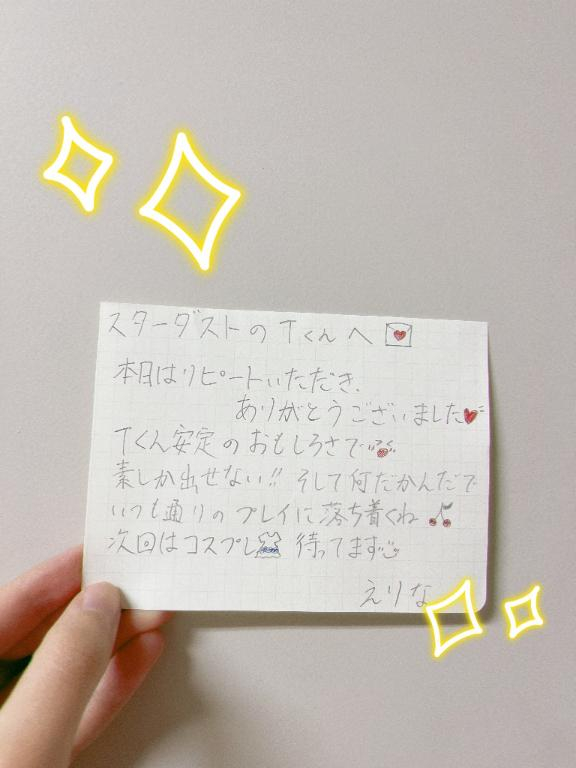 スターダストのTくんへ
本日はリピートいただき、
ありがとうございました
Tくん安定のおもしろさで
素しか出せない!! そして何だかんだで
いつも通りのプレイに落ち着くね
次回はコスプレ 待ってます
えりな